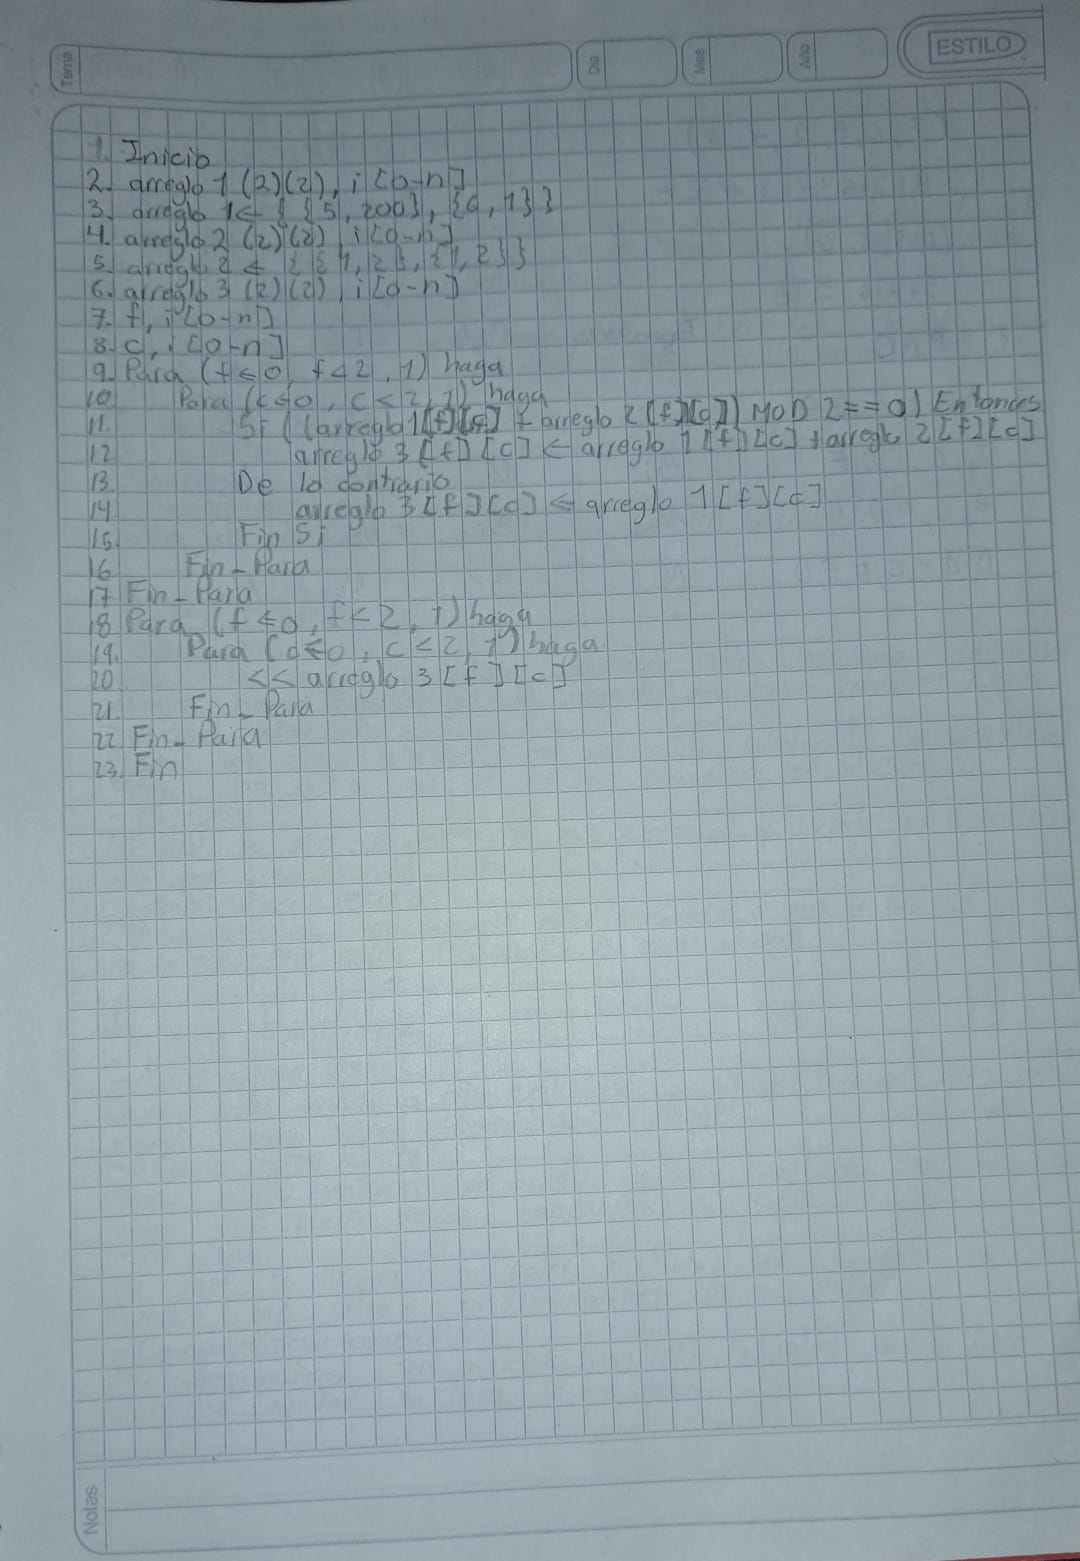 Tema
Dia
Mes
Año
ESTILO
1. Inicio
2. arreglo 1 (2)(2), i [0-n]
3. arreglo 1 ← { {5, 200}, {0, 1}}
4. arreglo 2 (2)(2), i [0-n]
5. arreglo 2 ← { {1, 2}, {1, 2}}
6. arreglo 3 (2)(2), i [0-n]
7. f, i [0-n]
8. c, i [0-n]
9. Para (f ← 0, f < 2, 1) haga
10 Para (c ← 0, c < 2, 1) haga
11. Si ((arreglo 1[f][c] + arreglo 2 [f][c]) MOD 2 == 0) Entonces
12 arreglo 3 [f][c] ← arreglo 1 [f][c] + arreglo 2 [f][c]
13. De lo contrario
14 arreglo 3 [f][c] ← arreglo 1 [f][c]
15. Fin Si
16 Fin-Para
17 Fin-Para
18 Para (f ← 0, f < 2, 1) haga
19. Para (c ← 0, c < 2, 1) haga
20 << arreglo 3 [f][c]
21. Fin-Para
22 Fin-Para
23. Fin
Notas